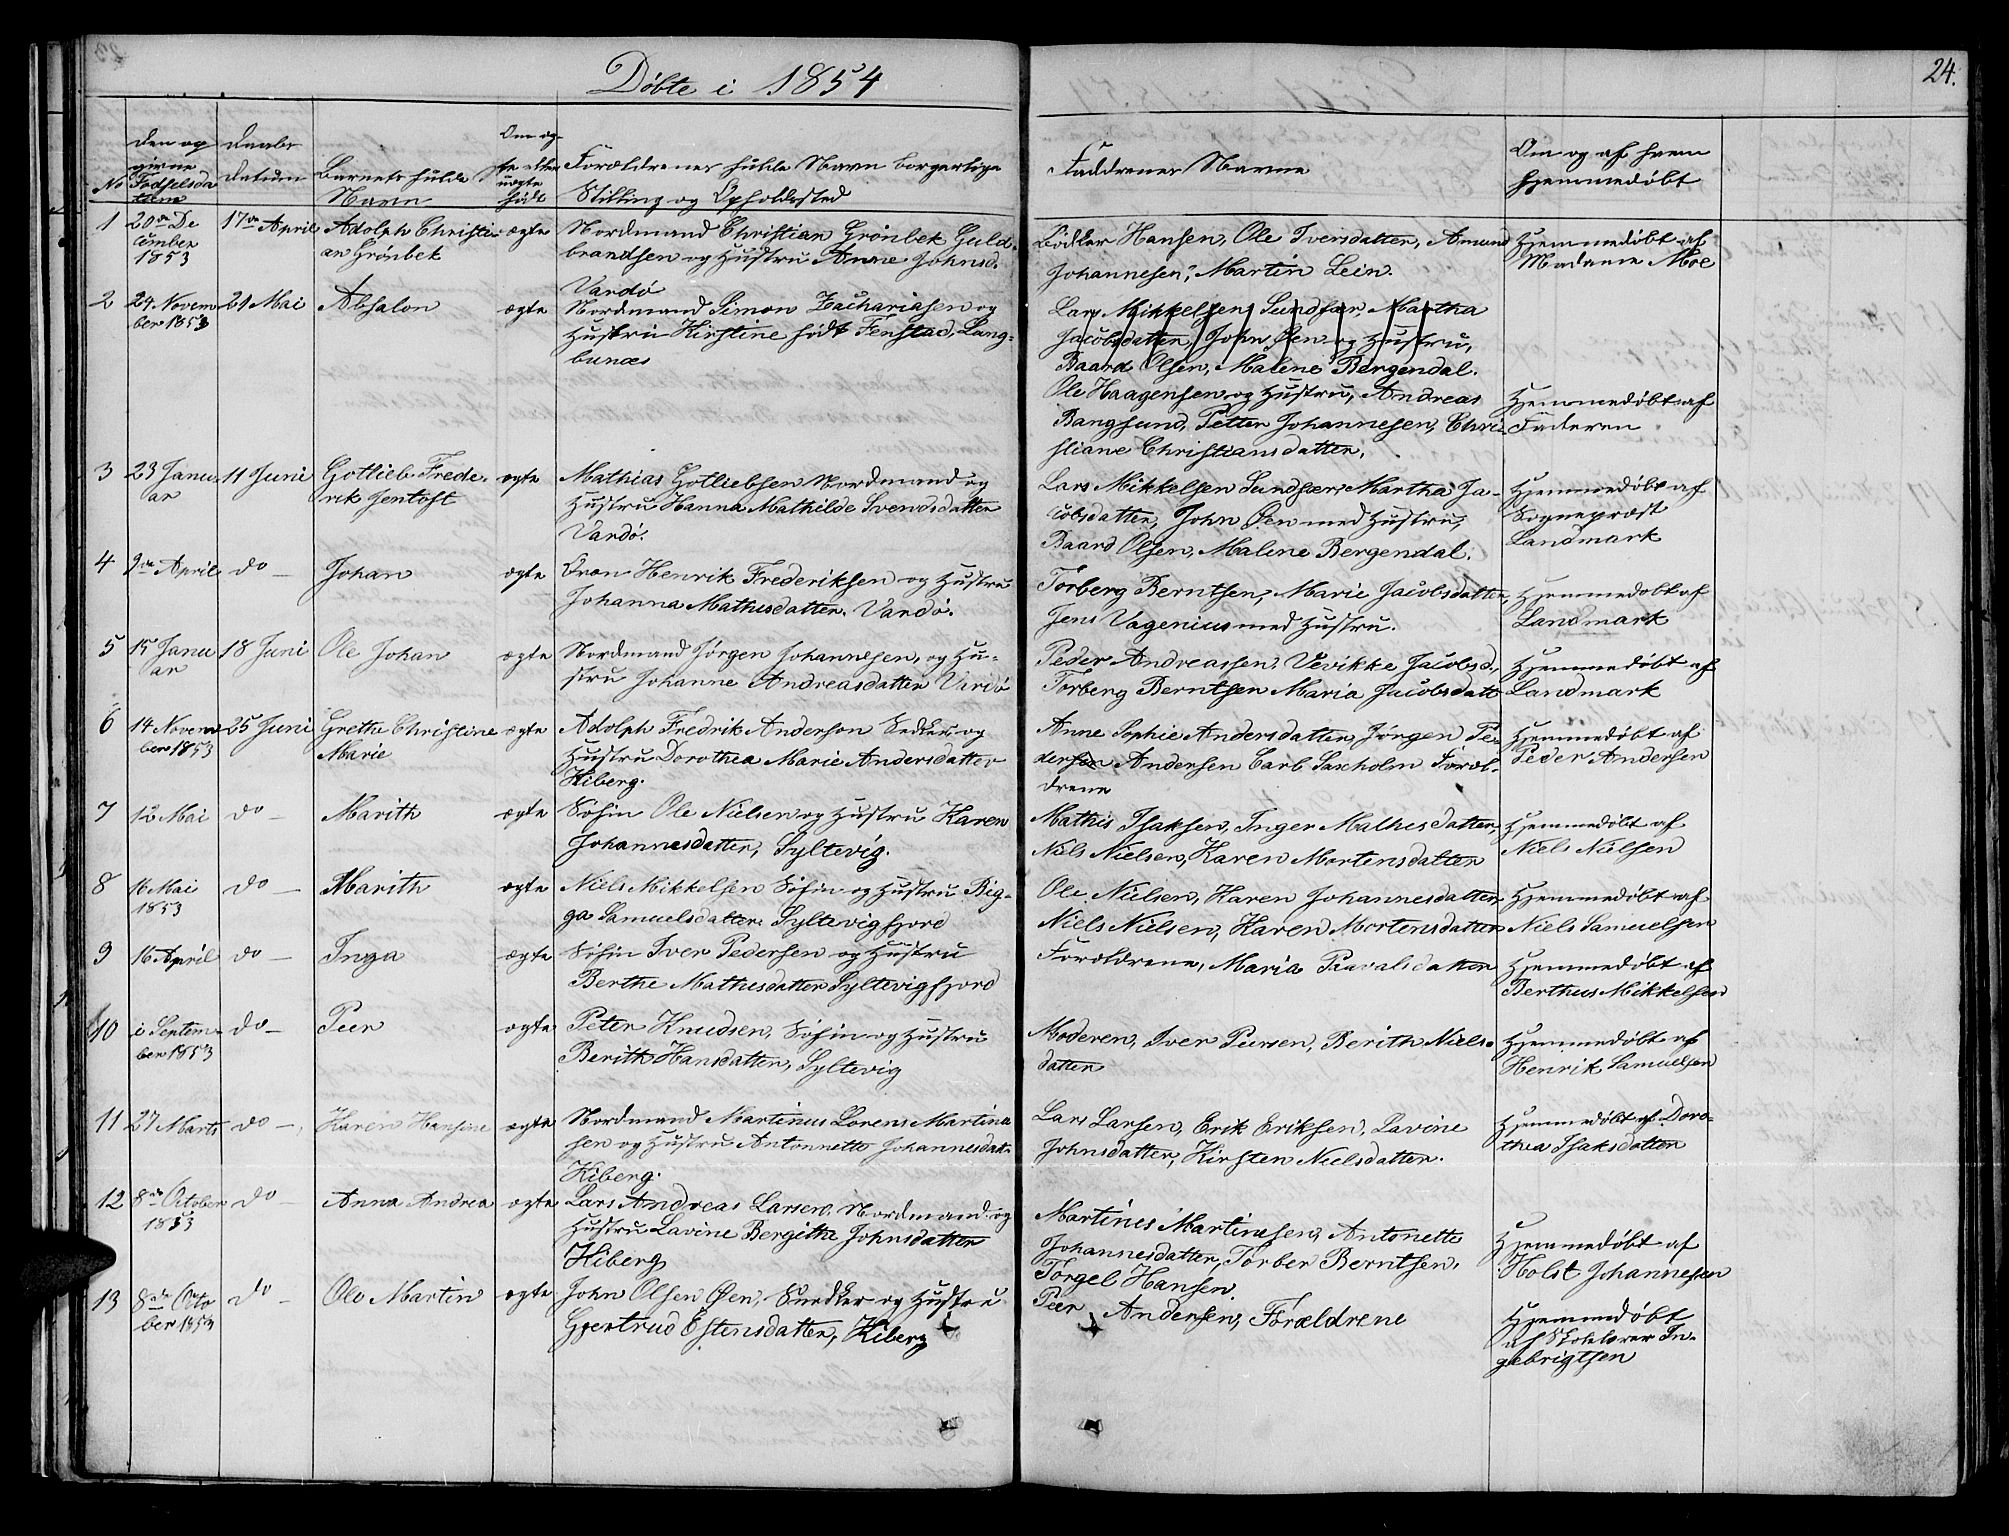 Døbte i 1854
24.
No
den op
givne
Fødselsda
tum
Daabs
datum
Barnets fulde
Navn
Om æg-
te eller
uægte
født
Forældrenes fulde Navn borgerlige
Stilling og Opholdssted
Faddrenes Navne
Om og af hvem
hjemmedøbt
1
20de De
cember
1853
17de April
Adolph Christi-
an Grönbek
ægte
Nordmand Christian Grönbek Guld-
brandsen og Hustru Anne Johnsd.
Vardö
Bödker Hansen, Ole Iversdatter, Amund
Johannesen, Martin Lein.
Hjemmedøbt af
Madame Moe
2
24. Novem
ber 1853
21 Mai
Absalon
ægte
Nordmand Simon Zachariasen og
Hustru Kirstine født Fenstad, Lang-
bunæs
Lars Mikkelsen Sundfær, Martha
Jacobsdatter, John Øen og Hustru,
Baard Olsen, Malene Bergendal.
Ole Haagensen og Hustru, Andreas
Bangsund, Petter Johannesen, Chri-
stiane Christiansdatter,
Hjemmedøbt af
Faderen
3
23 Janu-
ar
11 Juni
Gotlieb Frede-
rik Jentoft
ægte
Mathias Gotliebsen Nordmand og
Hustru Hanna Mathilde Svendsdatter
Vardö.
Lars Mikkelsen Sundfær, Martha Ja-
cobsdatter, John Øen med Hustru,
Baard Olsen, Malene Bergendal.
Hjemmedøbt af
Sognepræst
Landmark
4
9de April
do
Johan
ægte
Qvæn Henrik Frederiksen og Hustru
Johanna Mathisdatter. Vardö.
Torberg Berntsen, Marie Jacobsdatter,
Jens Vagenius med Hustru.
Hjemmedøbt af
Landmark
5
15 Janu
ar
18 Juni
Ole Johan
ægte
Nordmand Jörgen Johannesen, og Hu-
stru Johanne Andreasdatter Vardö
Peder Andreassen, Vevikke Jacobsd.,
Torberg Berntsen Maria Jacobsdatt
Hjemmedøbt af
Landmark
6
14 Novem
ber 1853
25 Juni
Grethe Christine
Marie
ægte
Adolph Fredrik Anderson Sedker og
Hustru Dorothea Marie Andersdatter
Kiberg.
Anne Sophie Andersdatter, Jörgen Pe-
dersen Andersen Carb. Saxholm Foræl-
drene
Hjemmedøbt af
Peder Andersen
7
12 Mai
do
Marith
ægte
Söfin Ole Nielsen og Hustru Karen
Johannesdatter, Syltevig.
Mathis Isaksen, Inger Mathisdatter,
Niels Nielsen, Karen Mortensdatter
Hjemmedøbt af
Niels Nielsen
8
16 Mai
1853
do
Marith
ægte
Niels Mikkelsen Söfin og Hustru Big-
ga Samuelsdatter Syltevigfjord
Ole Nielsen, Karen Johannesdatter
Niels Nielsen, Karen Mortensdatter
Hjemmedøbt af
Niels Samuelsen
9
16 April
do
Inga
ægte
Söfin Iver Pedersen og Hustru
Berthe Mathisdatter Syltevigfjord
Forældrene, Maria Paavalsdatter
Hjemmedøbt af
Berthus Mikkelsen
10
i Septem-
ber 1853
do
Peer
ægte
Peter Knudsen, Söfin og Hustru
Berith Hansdatter, Syltevig
Moderen, Iver Peersen, Berith Niels-
datter
Hjemmedøbt af
Henrik Samuelsen
11
27 Marts
do
Karen Hansine
ægte
Nordmand Martinus Lorens Martina
sen og Hustru Antonnette Johannesdat-
Kiberg.
Lars Larsen, Erik Eriksen, Lavine
Johnsdatter, Kirsten Nielsdatter.
Hjemmedøbt af Doro-
thea Isaksdatter
12
8de October
1853
do
Anna Andrea
ægte
Lars Andreas Larsen, Nordmand og
Hustru Lavine Bergithe Johnsdatter
Kiberg
Martines Martinesen, Antonette
Johannesdatter, Torber Berntsen,
Torgel Hansen.
Hjemmedøbt af
Holst Johannesen
13
8de Octo
ber 1853
do
Ole Martin
ægte
John Olsen Øen, Snedker og Hustru
Gjertrud Estensdatter, Kiberg
Peer Andersen, Forældrene
Hjemmedøbt
af Skolelærer In-
gebrigtsen